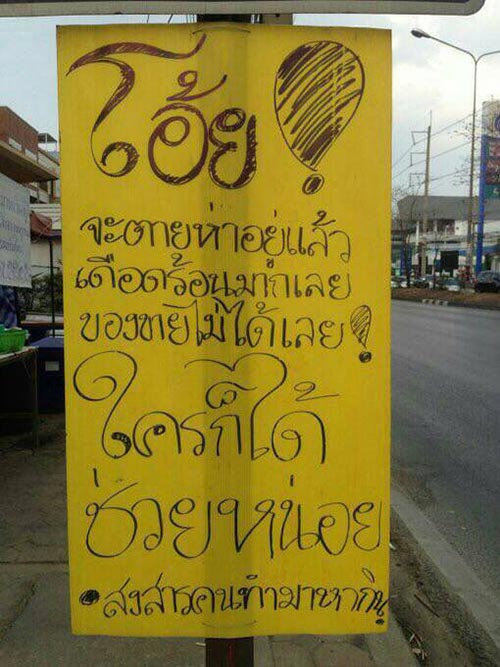 โอ้ย!
จะตายห่าอยู่แล้ว
เดือดร้อนมากเลย
ของขายไม่ได้เลย!
ใครก็ได้
ช่วยหน่อย
• สงสารคนทำมาหากิน